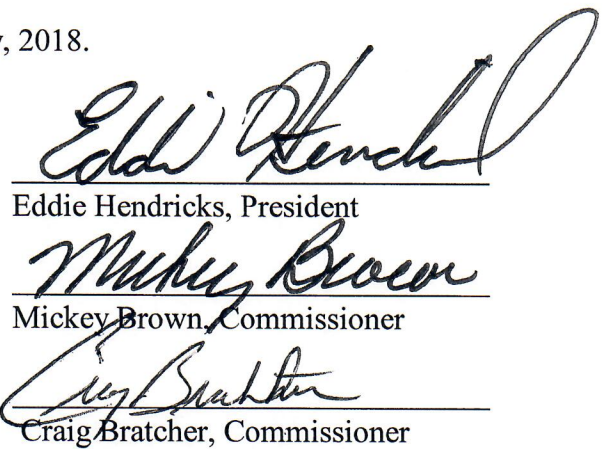 y, 2018.
Eddie Hendricks
Eddie Hendricks, President
Mickey Brown
Mickey Brown, Commissioner
Craig Bratcher
Craig Bratcher, Commissioner